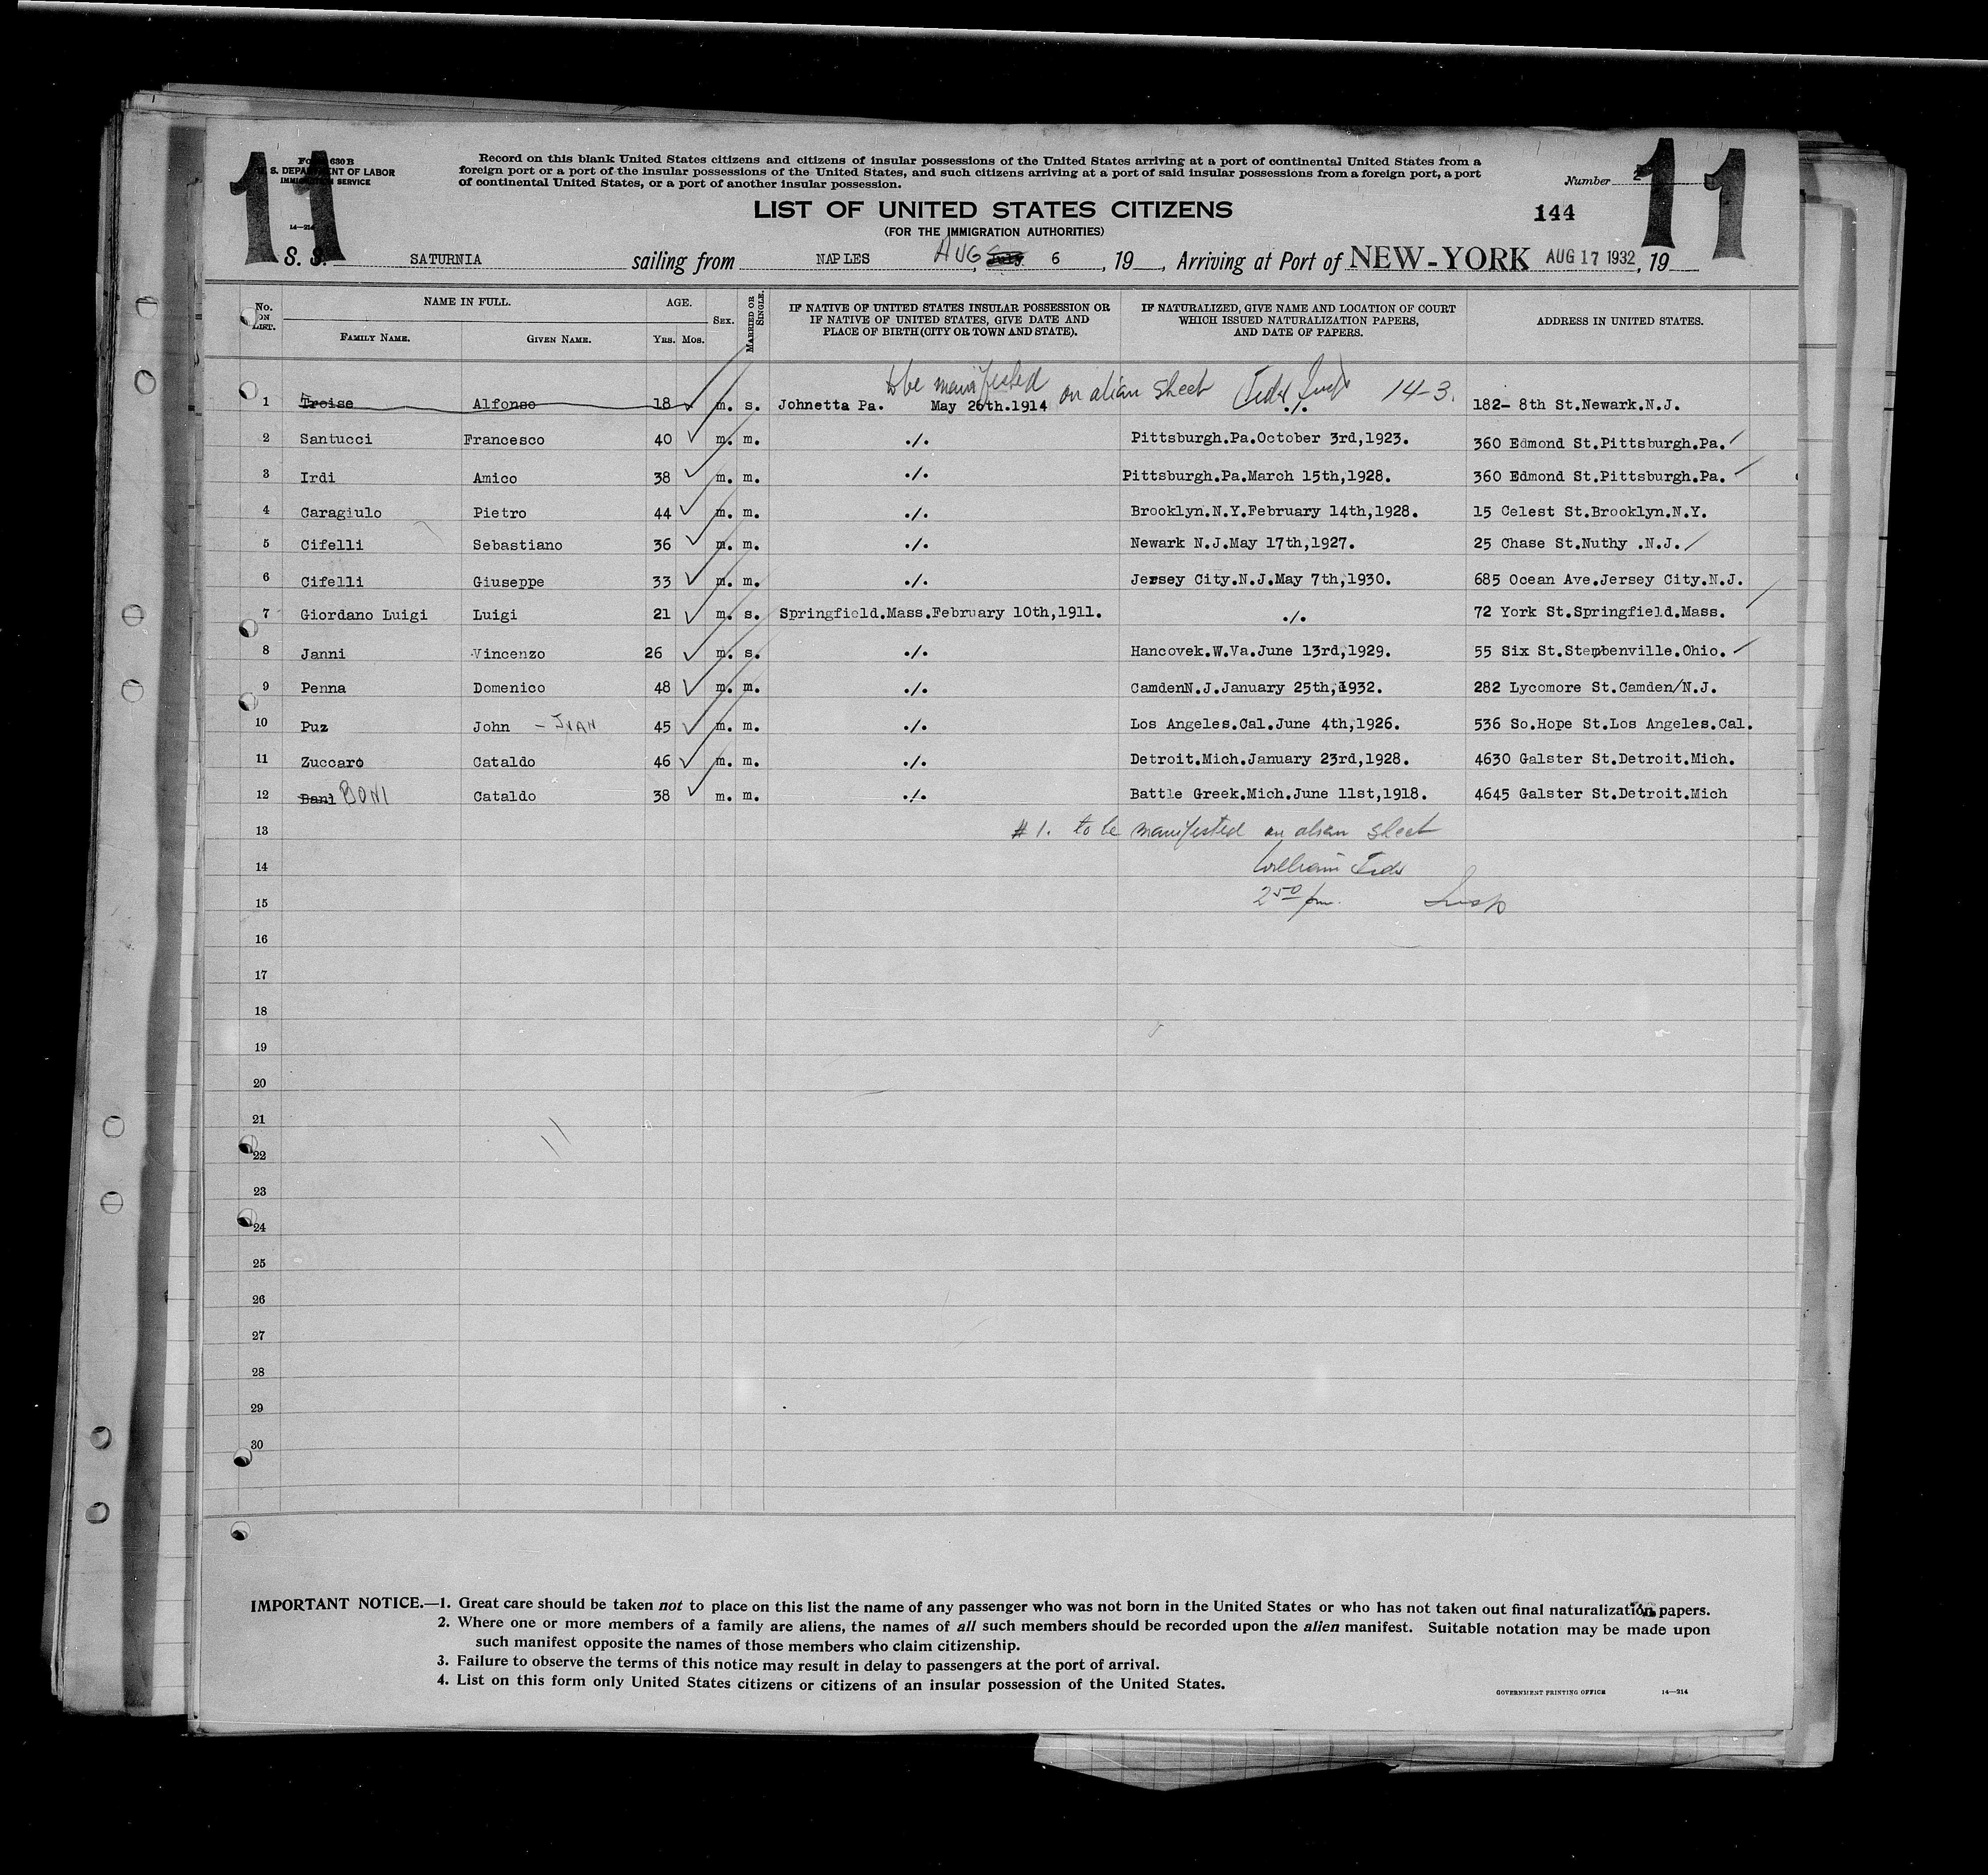 11
11
FORM 630 B
U. S. DEPARTMENT OF LABOR
IMMIGRATION SERVICE
14—214
Record on this blank United States citizens and citizens of insular possessions of the United States arriving at a port of continental United States from a
foreign port or a port of the insular possessions of the United States, and such citizens arriving at a port of said insular possessions from a foreign port, a port
of continental United States, or a port of another insular possession.
Number 2
LIST OF UNITED STATES CITIZENS
144
(FOR THE IMMIGRATION AUTHORITIES)
S. S. SATURNIA sailing from NAPLES, AUG July 6, 19__, Arriving at Port of NEW-YORK AUG 17 1932, 19
No. ON LIST. NAME IN FULL. AGE. SEX. MARRIED OR SINGLE. IF NATIVE OF UNITED STATES INSULAR POSSESSION OR IF NATIVE OF UNITED STATES, GIVE DATE AND PLACE OF BIRTH (CITY OR TOWN AND STATE). IF NATURALIZED, GIVE NAME AND LOCATION OF COURT WHICH ISSUED NATURALIZATION PAPERS, AND DATE OF PAPERS. ADDRESS IN UNITED STATES.
FAMILY NAME. GIVEN NAME. YRS. MOS.
to be manifested on alien sheet Insp 14-3.
1 Troise Alfonso 18 m. s. Johnetta Pa. May 26th.1914 ./. 182- 8th St.Newark.N.J.
2 Santucci Francesco 40 m. m. ./. Pittsburgh.Pa.October 3rd,1923. 360 Edmond St.Pittsburgh.Pa.
3 Irdi Amico 38 m. m. ./. Pittsburgh.Pa.March 15th,1928. 360 Edmond St.Pittsburgh.Pa.
4 Caragiulo Pietro 44 m. m. ./. Brooklyn.N.Y.February 14th,1928. 15 Celest St.Brooklyn.N.Y.
5 Cifelli Sebastiano 36 m. m. ./. Newark N.J.May 17th,1927. 25 Chase St.Nuthy .N.J.
6 Cifelli Giuseppe 33 m. m. ./. Jersey City.N.J.May 7th,1930. 685 Ocean Ave.Jersey City.N.J.
7 Giordano Luigi Luigi 21 m. s. Springfield.Mass.February 10th,1911. ./. 72 York St.Springfield.Mass.
8 Janni Vincenzo 26 m. s. ./. Hancovek.W.Va.June 13rd,1929. 55 Six St.Stembenville.Ohio.
9 Penna Domenico 48 m. m. ./. CamdenN.J.January 25th,1932. 282 Lycomore St.Camden/N.J.
10 Puz John - IVAN 45 m. m. ./. Los Angeles.Cal.June 4th,1926. 536 So.Hope St.Los Angeles.Cal.
11 Zuccaro Cataldo 46 m. m. ./. Detroit.Mich.January 23rd,1928. 4630 Galster St.Detroit.Mich.
12 Bani BONI Cataldo 38 m. m. ./. Battle Greek.Mich.June 11st,1918. 4645 Galster St.Detroit.Mich
13 #1. to be manifested on alien sheet
14 William
15 2 50 pm. Insp
16
17
18
19
20
21
22
23
24
25
26
27
28
29
30
IMPORTANT NOTICE.—1. Great care should be taken not to place on this list the name of any passenger who was not born in the United States or who has not taken out final naturalization papers.
2. Where one or more members of a family are aliens, the names of all such members should be recorded upon the alien manifest. Suitable notation may be made upon
such manifest opposite the names of those members who claim citizenship.
3. Failure to observe the terms of this notice may result in delay to passengers at the port of arrival.
4. List on this form only United States citizens or citizens of an insular possession of the United States.
GOVERNMENT PRINTING OFFICE 14—214